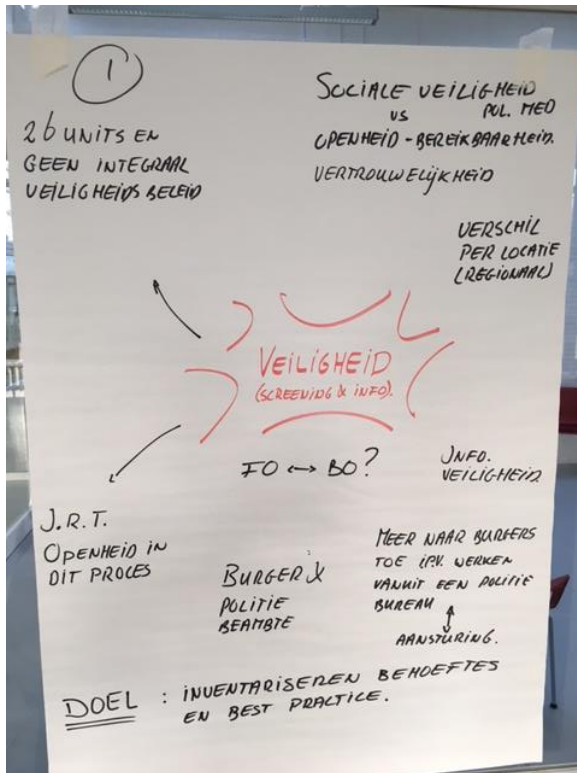 1
26 UNITS EN
GEEN INTEGRAAL
VEILIGHEIDS BELEID
SOCIALE VEILIGHEID
VS POL. MED
OPENHEID - BEREIKBAARHEID.
VERTROUWELIJKHEID
VERSCHIL
PER LOCATIE
(REGIONAAL)
VEILIGHEID
(SCREENING & INFO).
FO ↔ BO?
INFO.
VEILIGHEID
J.R.T.
OPENHEID IN
DIT PROCES
BURGER &
POLITIE
BEAMBTE
MEER NAAR BURGERS
TOE IPV. WERKEN
VANUIT EEN POLITIE
BUREAU
AANSTURING.
DOEL : INVENTARISEREN BEHOEFTES
EN BEST PRACTICE.